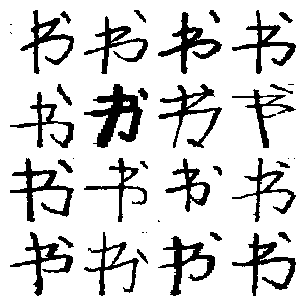 书书书书
书书书书
书书书书
书书书书